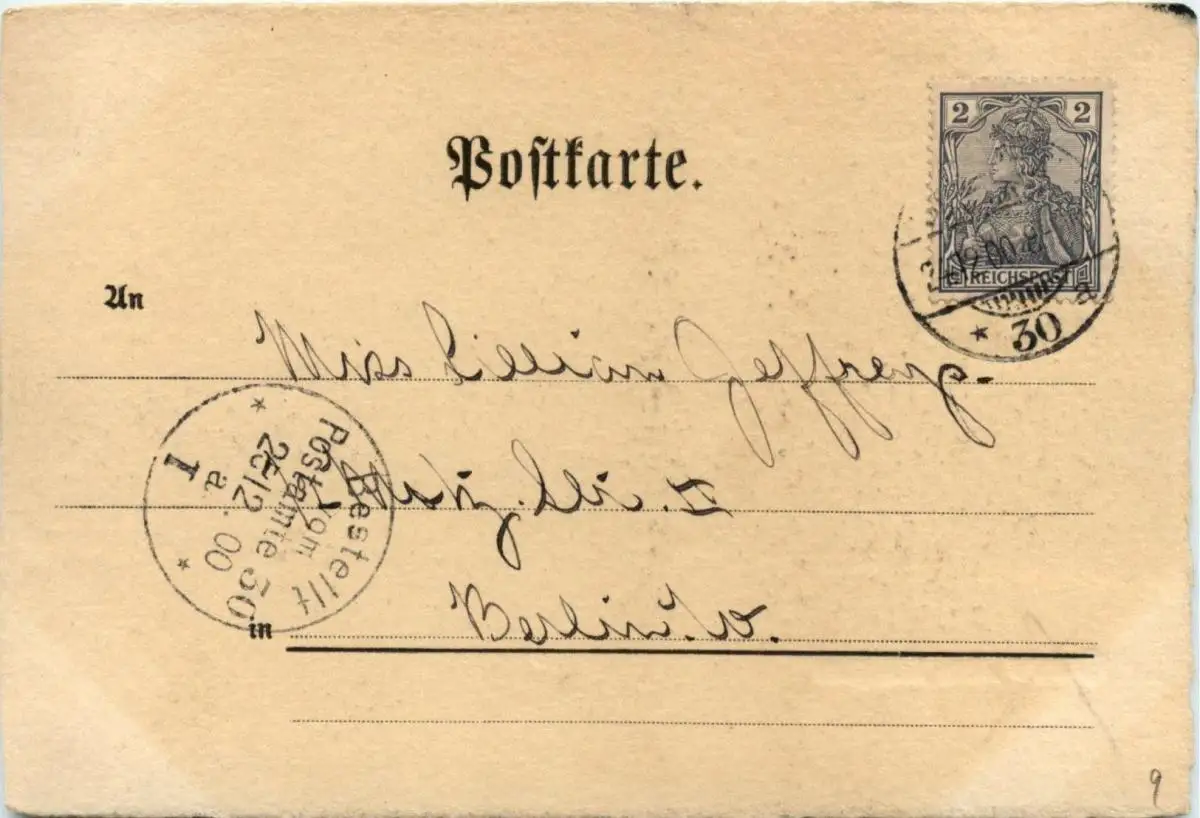 2 2
Postkarte.
REICHSPOST
12.00.8
a
* 30
An
Miss Lillian Jeffreys.
Str. I
Bestellt
vom
Postamte 30
12 00
a.
I
in
Berlin. W.
9